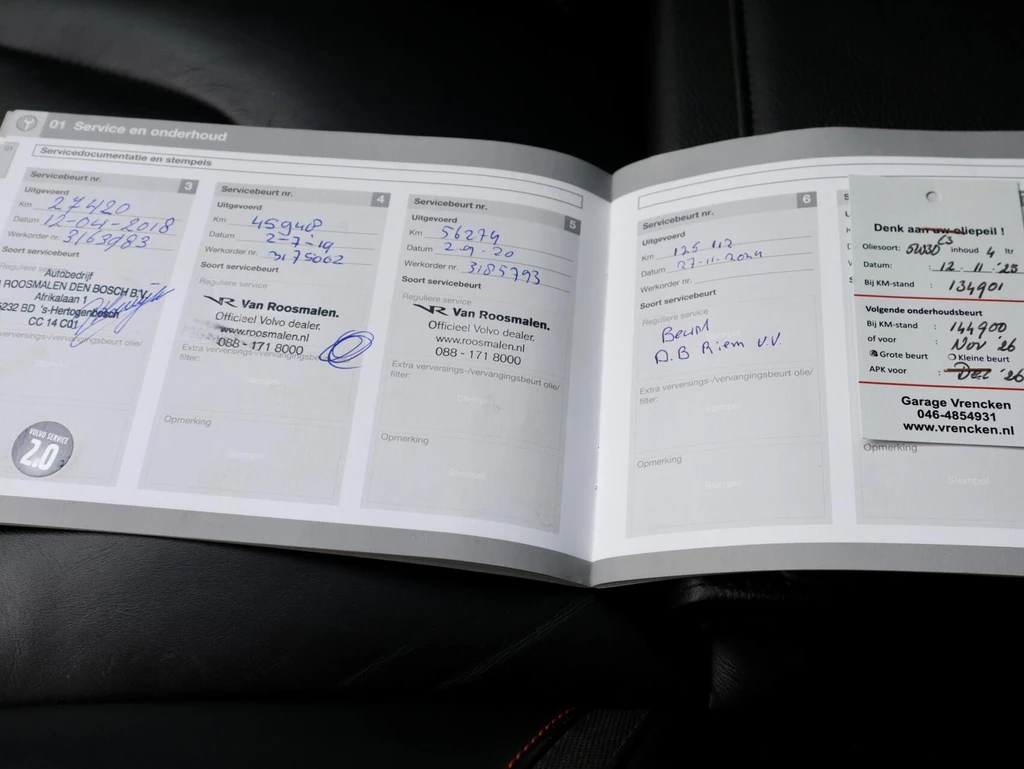 01 Service en onderhoud
Servicedocumentatie en stempels
01
Servicebeurt nr. 3
Uitgevoerd
Km 27420
Datum 12-04-2018
Werkorder nr. 3163983
Soort servicebeurt
Reguliere service
Autobedrijf
ROOSMALEN DEN BOSCH B.V.
Afrikalaan 1
5232 BD 's-Hertogenbosch
CC 14 C01
VOLVO SERVICE
2.0
Servicebeurt nr. 4
Uitgevoerd
Km 45948
Datum 2-7-19
Werkorder nr. 3175062
Soort servicebeurt
Reguliere service
VR Van Roosmalen.
Officieel Volvo dealer.
www.roosmalen.nl
088 - 171 8000
Extra verversings-/vervangingsbeurt olie/
filter:
Stempel
Opmerking
Stempel
Servicebeurt nr. 5
Uitgevoerd
Km 56274
Datum 2-9-20
Werkorder nr. 3185793
Soort servicebeurt
Reguliere service
VR Van Roosmalen.
Officieel Volvo dealer.
www.roosmalen.nl
088 - 171 8000
Extra verversings-/vervangingsbeurt olie/
filter:
Stempel
Opmerking
Stempel
Servicebeurt nr. 6
Uitgevoerd
Km 125 112
Datum 27-11-2024
Werkorder nr.
Soort servicebeurt
Reguliere service
Beurt
D.B Riem v.v.
Extra verversings-/vervangingsbeurt olie/
filter:
Stempel
Opmerking
Stempel
Denk aan uw oliepeil !
C3
Oliesoort: 5W30 inhoud 4 ltr
Datum: 12. 11 '25
Bij KM-stand : 134901
Volgende onderhoudsbeurt
Bij KM-stand : 144900
of voor : Nov '26
Grote beurt Kleine beurt
APK voor : Dec '26
Garage Vrencken
046-4854931
www.vrencken.nl
Opmerking
Stempel